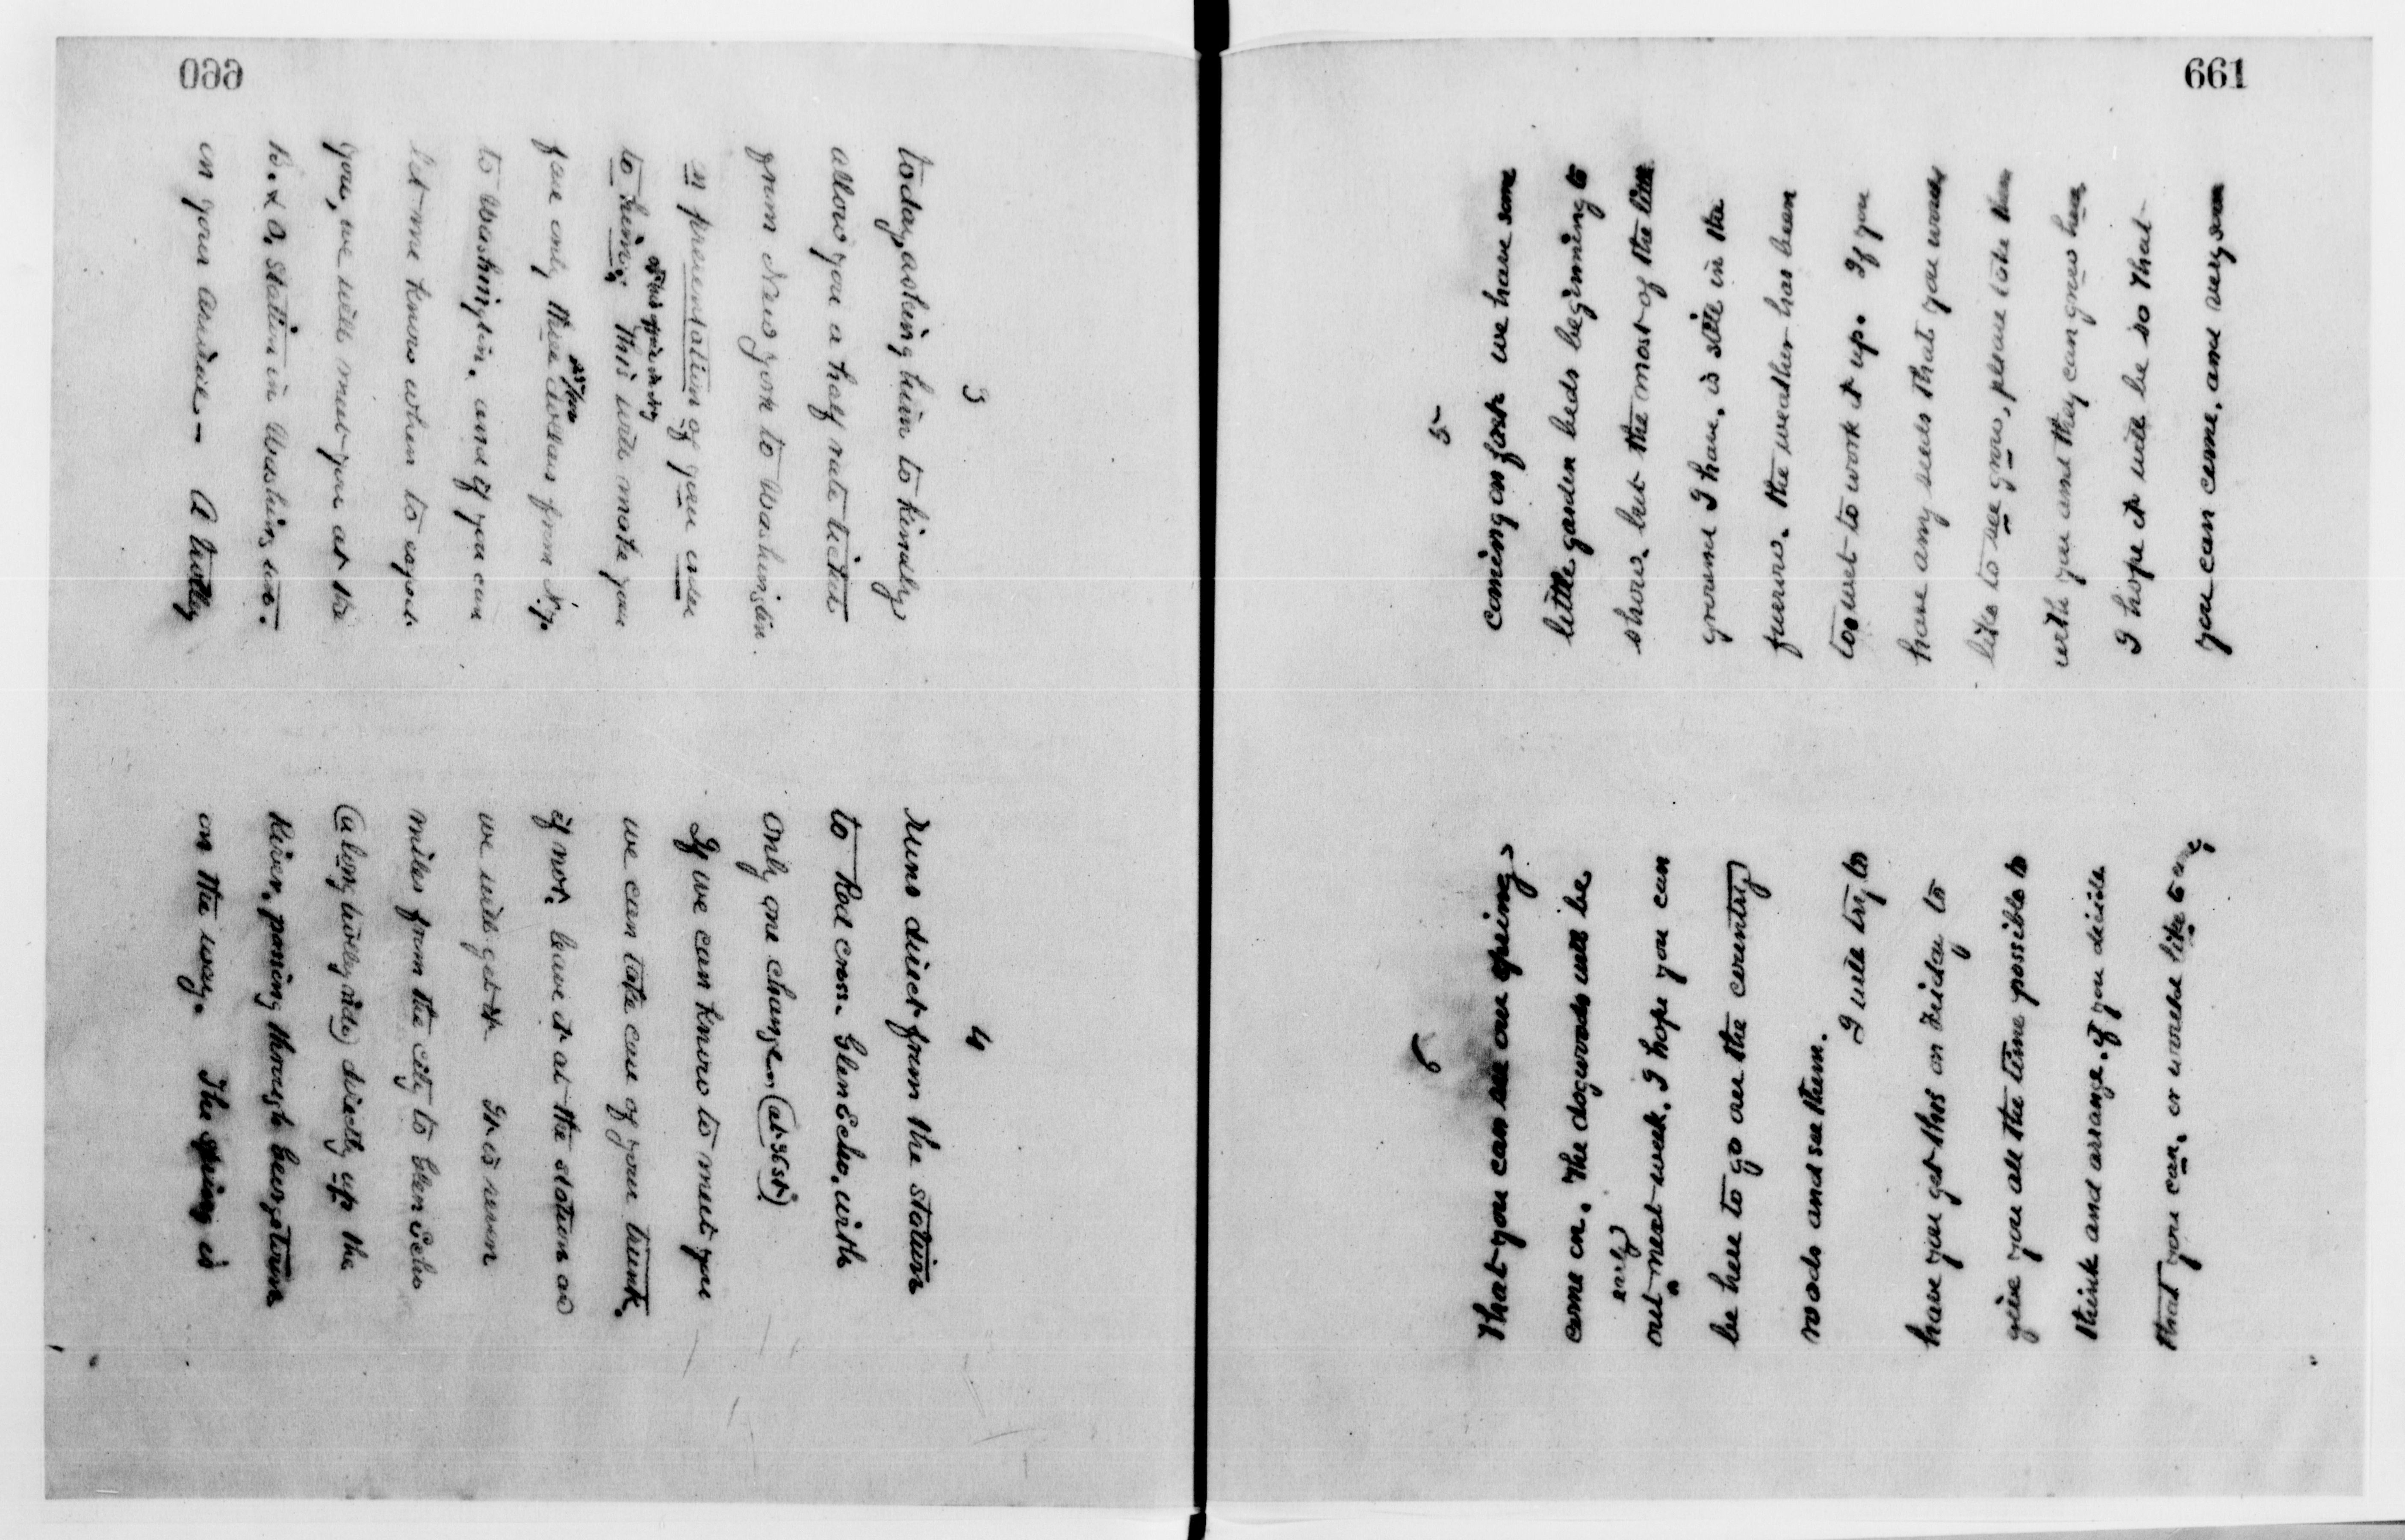 660
3
today, asking him to kindly
allow you a half rate ticket
from New York to Washington
on presentation of your order
to him; This will make your
on his your order
fare only three 25/100 dollars from N.Y.
to Washington. and if you can
let me know when to expect
you, we will meet you at the
B. & O. Station in Washington.
on your arrival — A trolley
4
runs direct from the station
to Red Cross. Glen Echo, with
only one change (at 36 st.)
If we can know to meet you
we can take care of your trunk.
if not, leave it at the station as
we will get it It is seven
miles from the city to Glen Echo
(a long trolley ride) directly up the
River, passing through Georgetown
on the way. The spring is
661
5
coming on fast we have some
little garden beds beginning to
show. but the most of the little
ground I have, is still in the
furrow. the weather has been
too wet to work it up. If you
have any seeds that you would
like to see grow, please take them
with you and they can grow here
I hope it will be so that
you can come, and very soon
6
that you can see our spring
come on. The dogwoods will be
early
out next week. I hope you can
be here to go out the country
roads and see them.
I will try to
have you get this on Friday to
give you all the time possible to
think and arrange. if you decide
that you can, or would like to come,